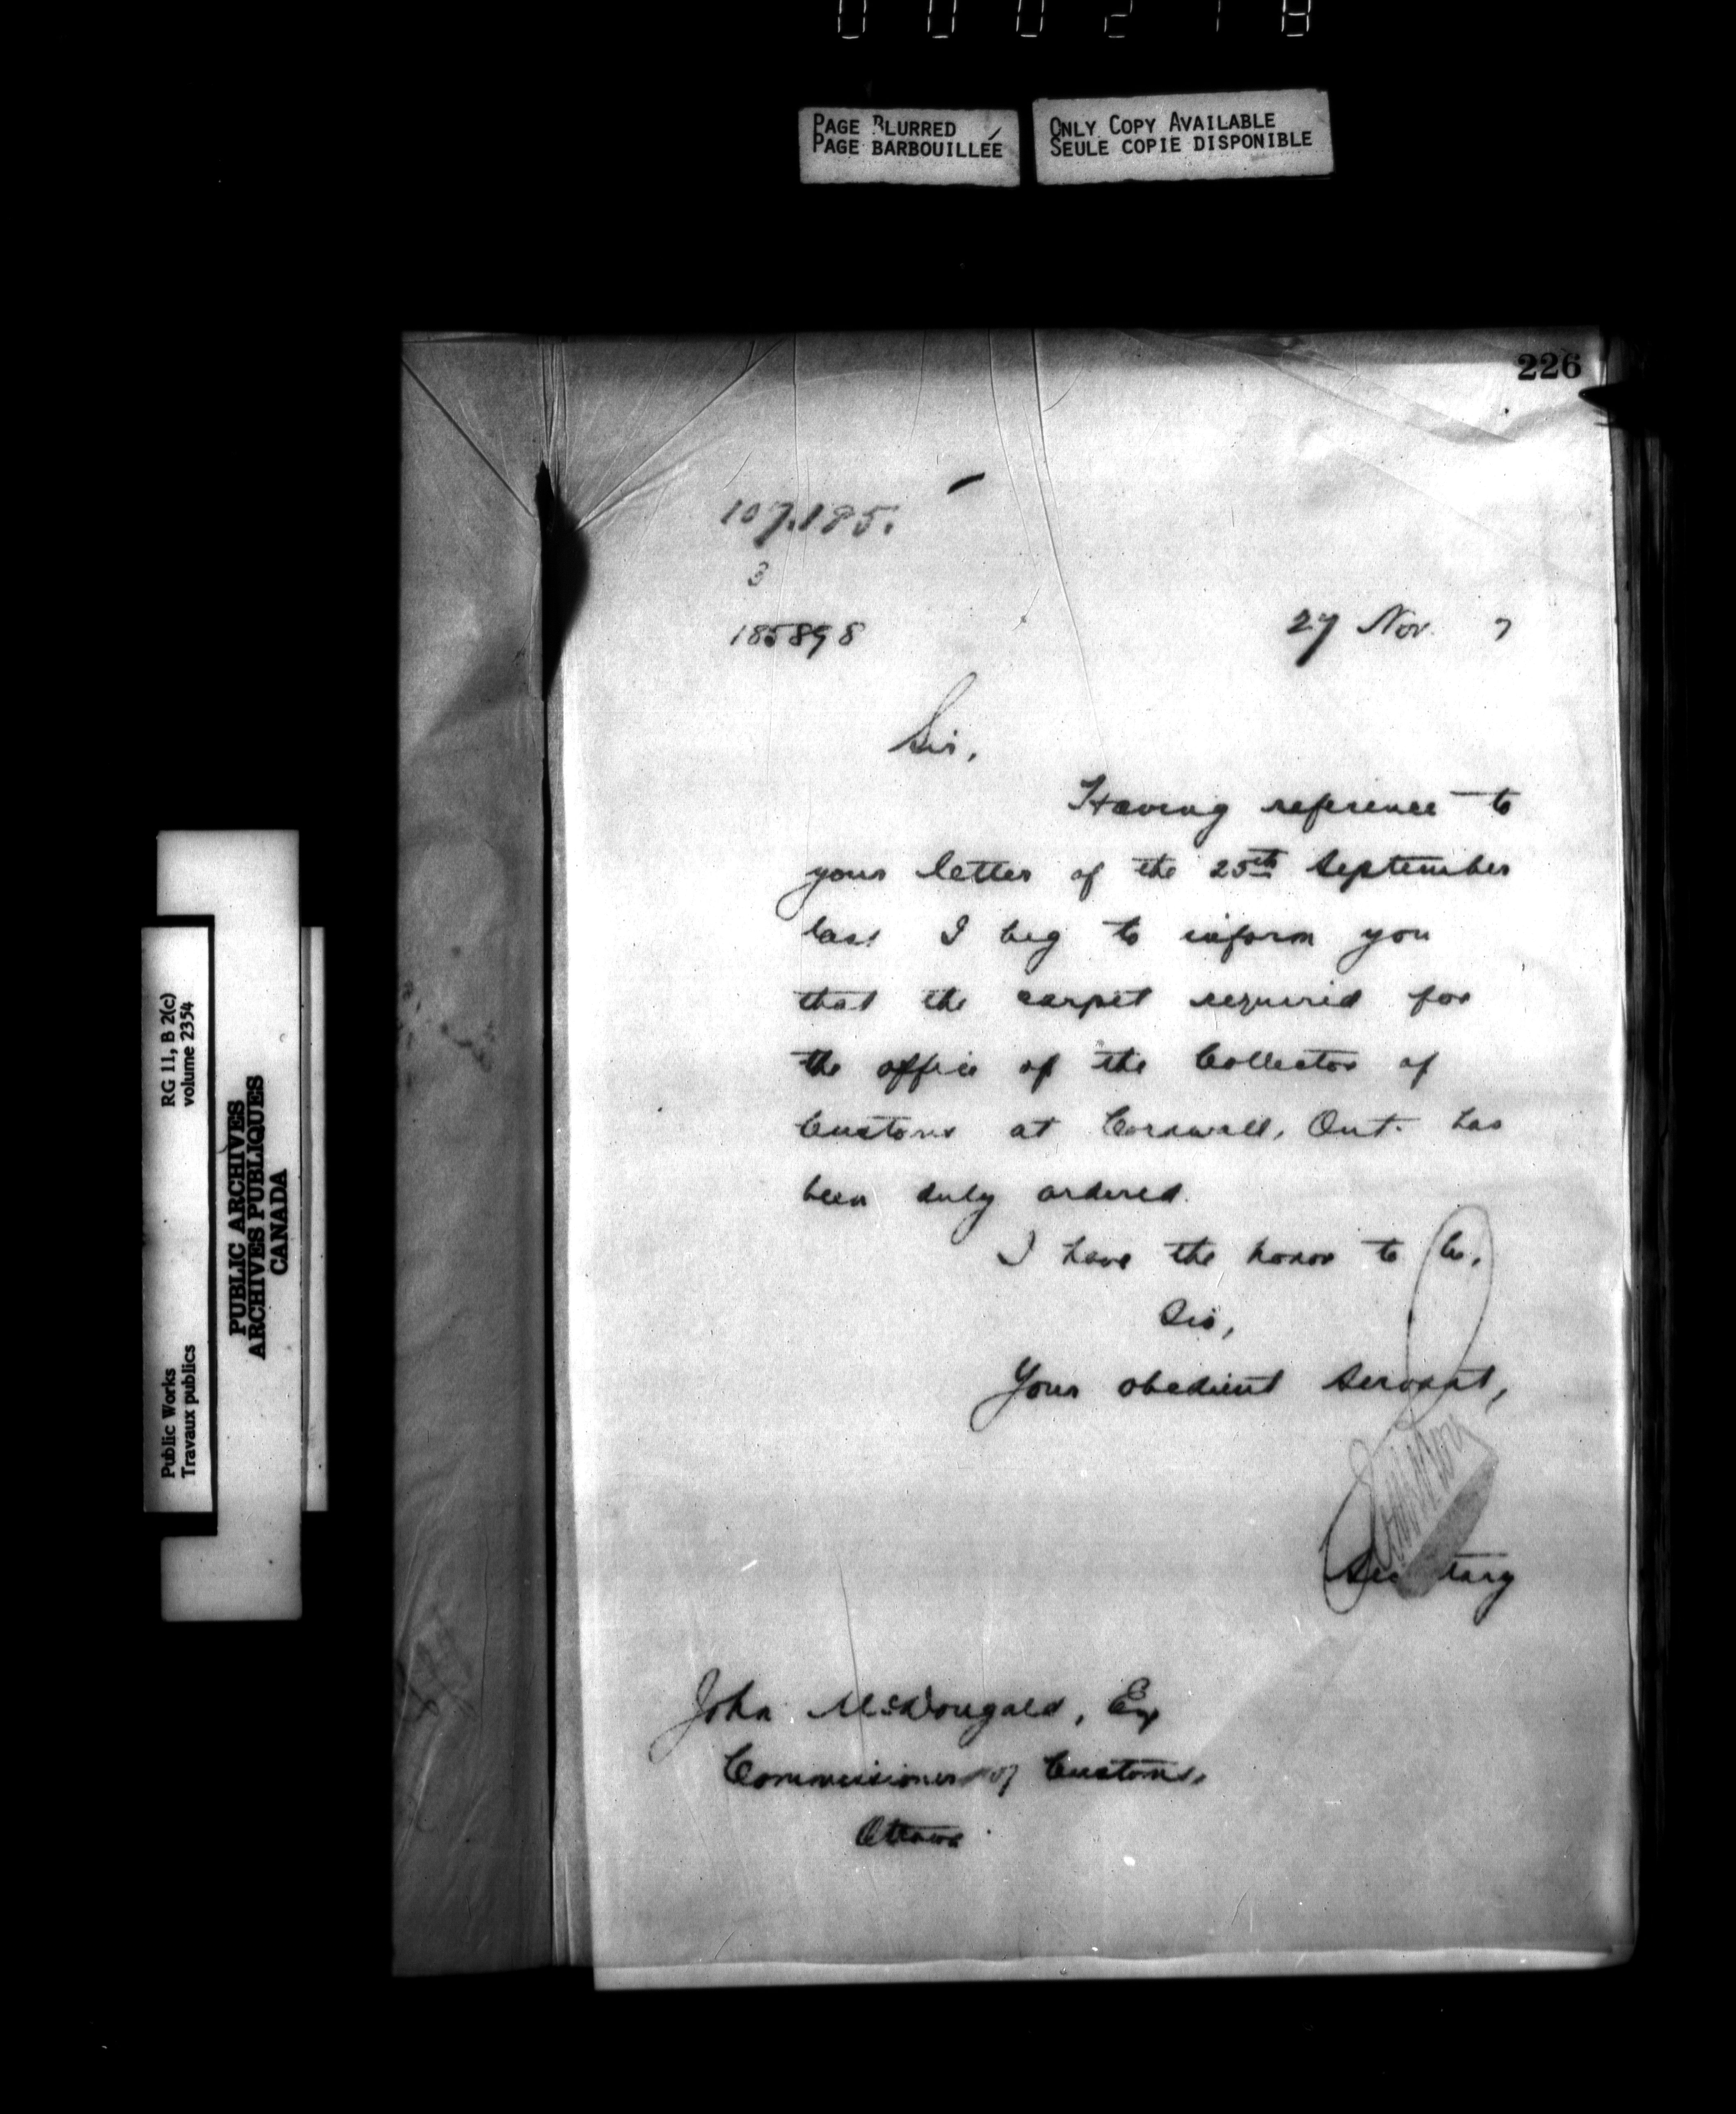 000218
PAGE BLURRED
PAGE BARBOUILLÉE
ONLY COPY AVAILABLE
SEULE COPIE DISPONIBLE
226
107.195.
3
185898
27 Nov. 7
Sir,
Having reference to
your letter of the 25th September
last I beg to inform you
that the carpet required for
the office of the Collector of
Customs at Cornwall, Ont. has
been duly ordered.
I have the honor to be,
Sir,
Your obedient servant,
Secretary
John McDougald, Esq
Commissioner of Customs,
Ottawa.
RG 11, B 2(c)
volume 2354
Public Works
Travaux publics
PUBLIC ARCHIVES
ARCHIVES PUBLIQUES
CANADA